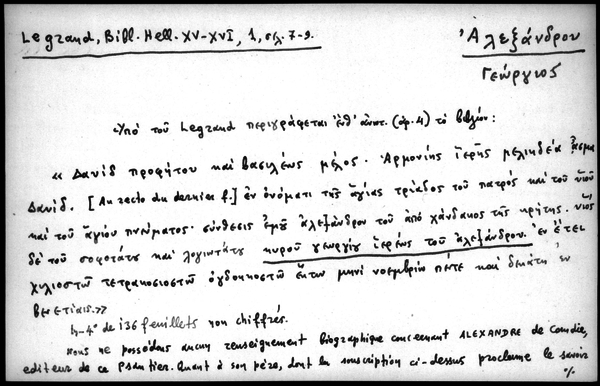 Legrand, Bibl. Hell. XV-XVI, 1, σελ. 7-9.
Ἀλεξάνδρου
Γεώργιος
Ὑπὸ τοῦ Legrand περιγράφεται ἐνθ' ἀνωτ. (ἀρ. 4) τὸ βιβλίον:
« Δαυὶδ προφήτου καὶ βασιλέως μέλος. Ἁρμονίης ἱερῆς μελιηδέα ᾄσματα
Δαυίδ. [Au recto du dernier f.] ἐν ὀνόματι τῆς ἁγίας τριάδος τοῦ πατρός καὶ τοῦ υἱοῦ
καὶ τοῦ ἁγίου πνεύματος. σύνθεσις ἐμοῦ ἀλεξάνδρου τοῦ ἀπὸ χάνδακος τῆς κρήτης. υἱὸς
δὲ τοῦ σοφοτάτου καὶ λογιωτάτου κυροῦ γεωργίου ἱερέως τοῦ ἀλεξάνδρου. Ἐν ἔτει
χιλιοστῷ τετρακοσιοστῷ ὀγδοηκοστῷ ἕκτῳ μηνὶ νοεμβρίῳ πέντε καὶ δεκάτῃ ἐν
Βενετίαις.»
In-4° de 136 feuillets non chiffrés.
nous ne possédons aucun renseignement biographique concernant ALEXANDRE de Candie,
editeur de ce Psautier. Quant à son père, dont la souscription ci-dessus proclame le savoir
%